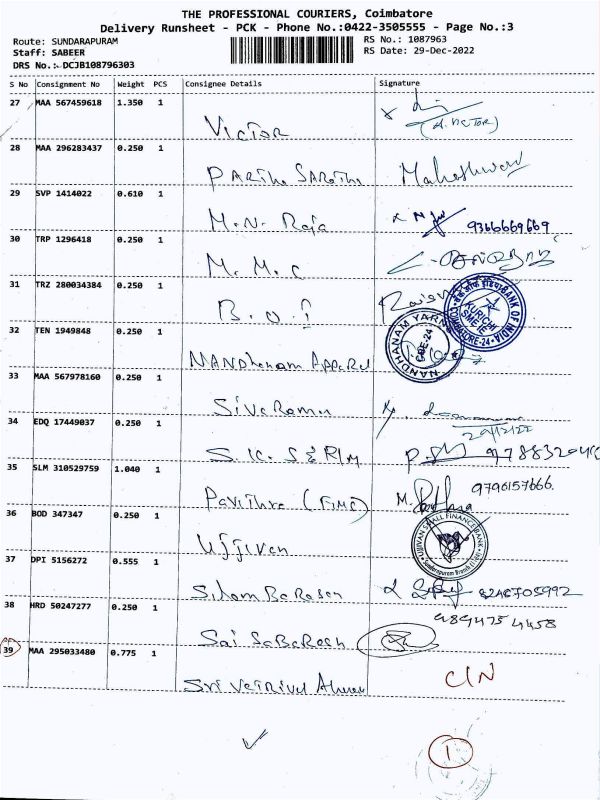 THE PROFESSIONAL COURIERS, Coimbatore
Delivery Runsheet - PCK - Phone No.:0422-3505555 - Page No.:3
Route: SUNDARAPURAM RS No.: 1087963
Staff: SABEER RS Date: 29-Dec-2022
DRS No.: DCJB108796303
S No Consignment No Weight PCS Consignee Details Signature
27 MAA 567459618 1.350 1
Victor (A. VICTOR)
28 MAA 296283437 0.250 1
Partha Sarathi Maheshwari
29 SVP 1414022 0.610 1
M.N. Raja 9366669669
30 TRP 1296418 0.250 1
M.M.C
31 TRZ 280034384 0.250 1
B.O.I
BANK OF INDIA
KURICHI
SME
COIMBATORE-24
32 TEN 1949848 0.250 1
Nandhanam Apparel
NANDHANAM YARNS
CBE-24
33 MAA 567978160 0.250 1
Sivaraman
29/12/22
34 EDQ 17449037 0.250 1
S.K. S & RIM
35 SLM 310529759 1.040 1
Pavithra (FIMC) 9796157666
36 BOD 347347 0.250 1
Ujjivan
UJJIVAN SMALL FINANCE BANK
Sundarapuram Branch
37 DPI 5156272 0.555 1
38 HRD 50247277 0.250 1
9894754458
Sai Sabaresh
39 MAA 295033480 0.775 1
Sri Vetrivel
C/N
1